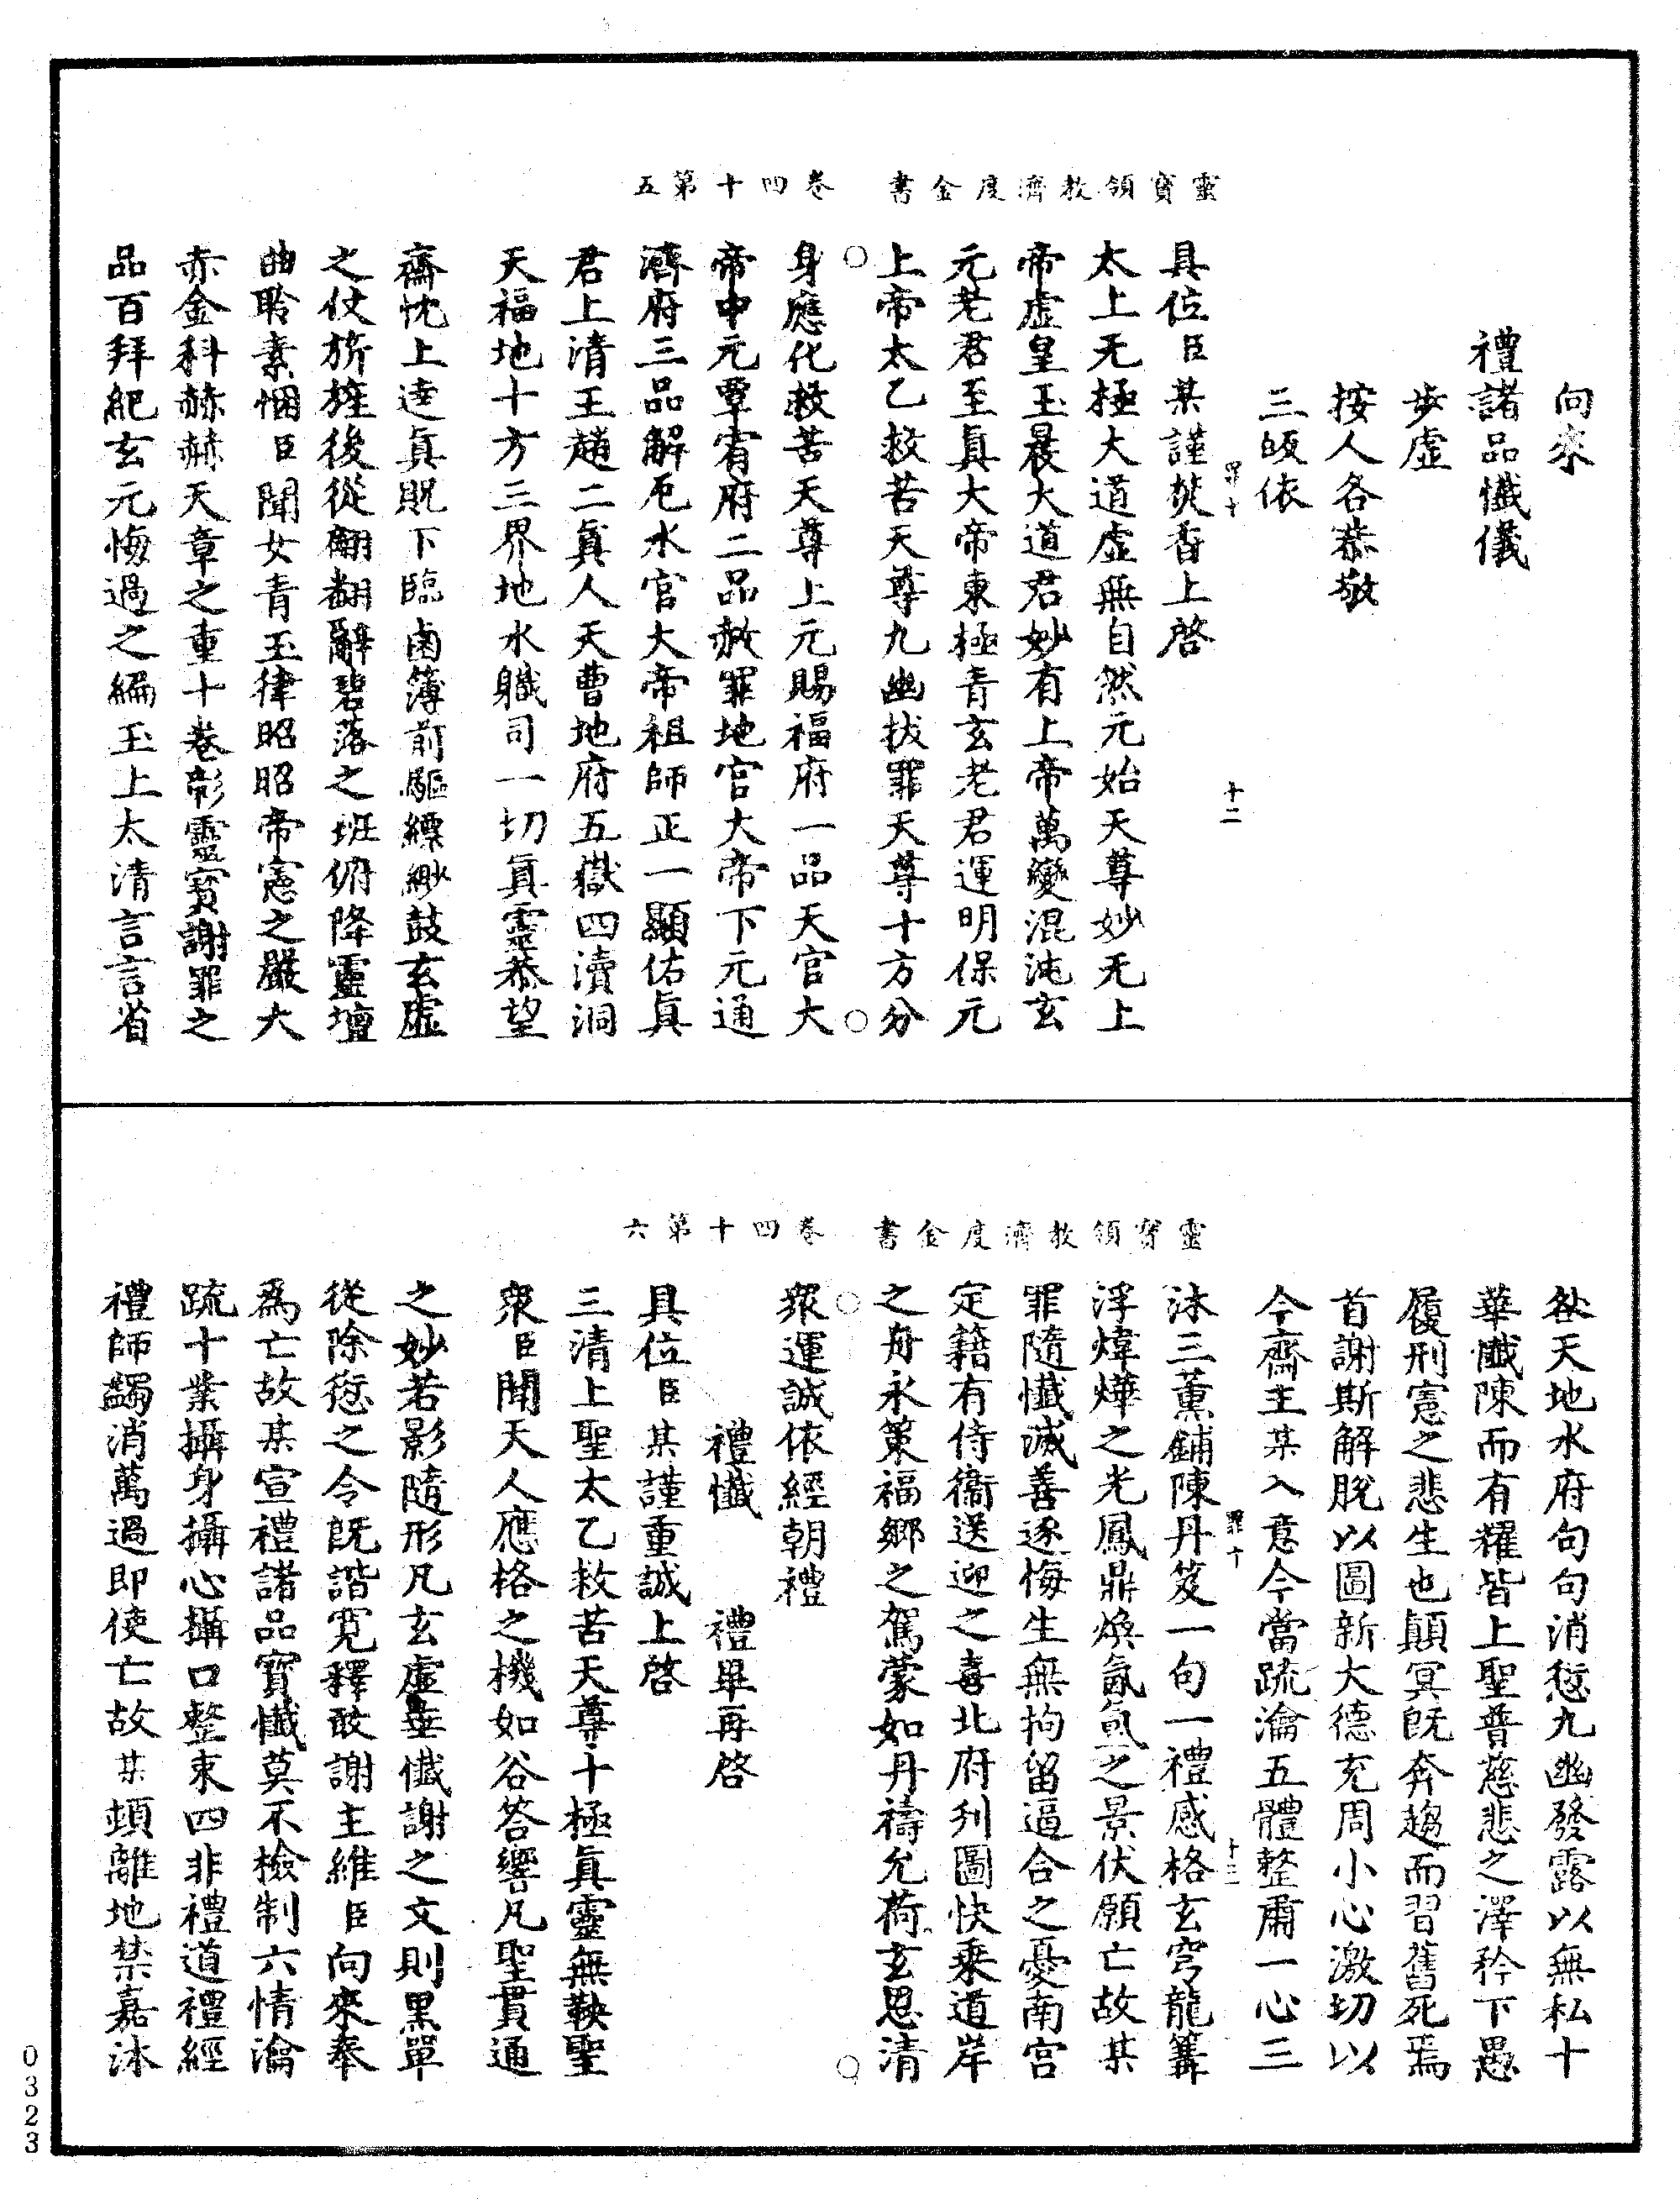 靈寶領教濟度金書　卷四十第五
向來
禮諸品懺儀
步虛
按人各恭敬
三皈依
罪十　十二
具位臣某謹焚香上啓
太上无極大道虛無自然元始天尊妙无上
帝虛皇玉晨大道君妙有上帝萬變混沌玄
元老君至眞大帝東極青玄老君運明保元
上帝太乙救苦天尊九幽拔罪天尊十方分
身應化救苦天尊上元賜福府一品天官大
帝中元覃宥府二品赦罪地官大帝下元通
濟府三品解厄水官大帝祖師正一顯佑眞
君上清王趙二眞人天曹地府五嶽四瀆洞
天福地十方三界地水職司一切眞靈恭望
齋忱上達眞貺下臨鹵簿前驅縹緲鼓玄虛
之仗旂旌後從翩翻辭碧落之班俯降靈壇
曲聆素悃臣聞女青玉律昭昭帝憲之嚴大
赤金科赫赫天章之重十卷彰靈寶謝罪之
品百拜紀玄元悔過之編玉上太清言言省
靈寶領教濟度金書　卷四十第六
咎天地水府句句消愆九幽發露以無私十
華懺陳而有耀皆上聖普慈悲之澤矜下愚
履刑憲之悲生也顛冥旣奔趨而習舊死焉
首謝斯解脫以圖新大德充周小心激切以
今齋主某入意今當疏瀹五體整肅一心三
罪十　十三
沐三薰鋪陳丹笈一句一禮感格玄穹龍篝
浮煒燁之光鳳鼎煥氤氳之景伏願亡故某
罪隨懺滅善逐悔生無拘留逼合之憂南宮
定籍有侍衞送迎之喜北府列圖快乘道岸
之舟永策福鄉之駕蒙如丹禱允荷玄恩清
衆運誠依經朝禮
禮懺　禮畢再啓
具位臣某謹重誠上啓
三清上聖太乙救苦天尊十極眞靈無鞅聖
衆臣聞天人應格之機如谷答響凡聖貫通
之妙若影隨形凡玄虛垂懺謝之文則黑單
從除愆之令旣諧寬釋敢謝主維臣向來奉
爲亡故某宣禮諸品寶懺莫不檢制六情瀹
疏十業攝身攝心攝口整束四非禮道禮經
禮師蠲消萬過即使亡故某頓離地禁嘉沐
0323